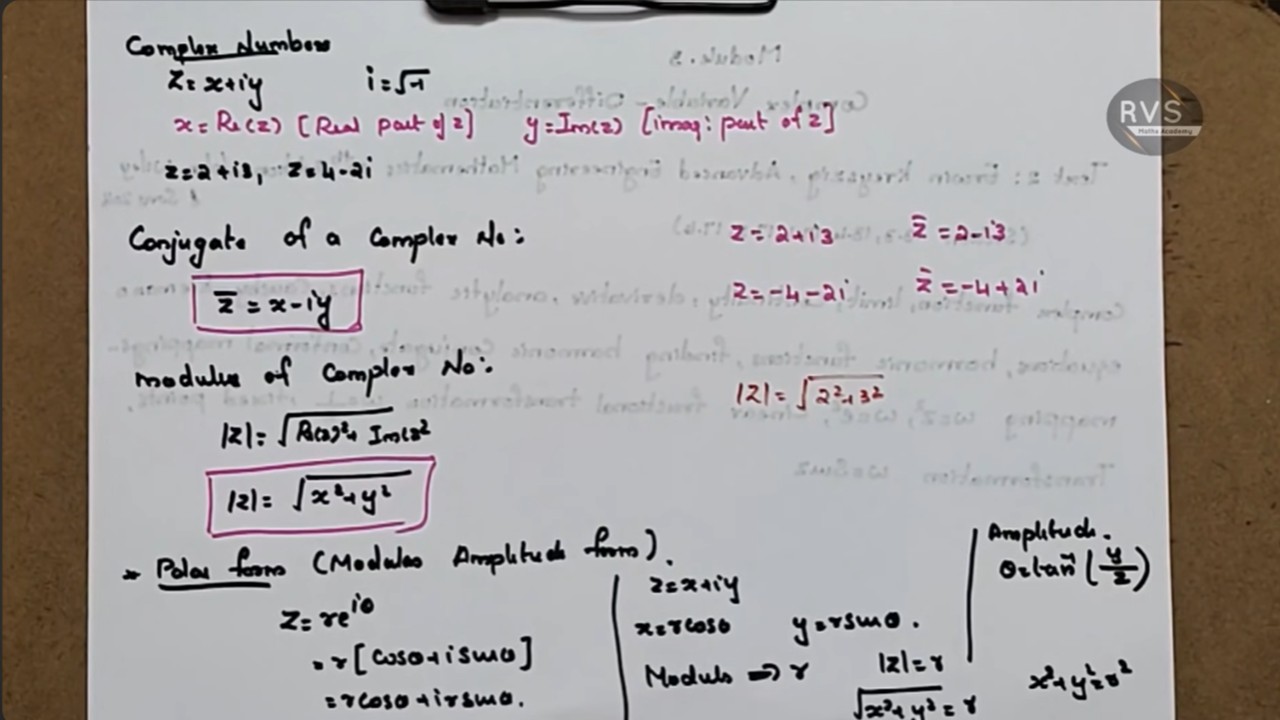 Complex Numbers
z = x+iy i = √-1
x = Re(z) [Real part of z] y = Im(z) [imag: part of z]
z = 2+i3, z = 4-2i
Conjugate of a Complex No:
z̄ = x-iy
z = 2+i3 z̄ = 2-i3
z = -4-2i z̄ = -4+2i
modulus of Complex No:
|z| = √Re(z)²+ Im(z)²
|z| = √x²+y²
|z| = √2²+3²
* Polar form (Modulus Amplitude form).
z = re^iθ
= r[cosθ+isinθ]
= rcosθ+irsinθ.
z = x+iy
x = rcosθ y = rsinθ.
Modulus ⇒ r |z| = r
√x²+y² = r
Amplitude.
θ = tan⁻¹(y/x)
x²+y² = r²
RVS
Maths Academy
Module. 3
Complex Variable - Differentiation
Text 2: Erwin Kreyszig, Advanced Engineering Mathematics
Complex function, limit, continuity, derivative, analytic functions, Cauchy
equations, harmonic functions, finding harmonic conjugate, Conformal mappings-
mapping w=z², w=e^z, Linear fractional transformation fixed points,
Transformation w=Sinz